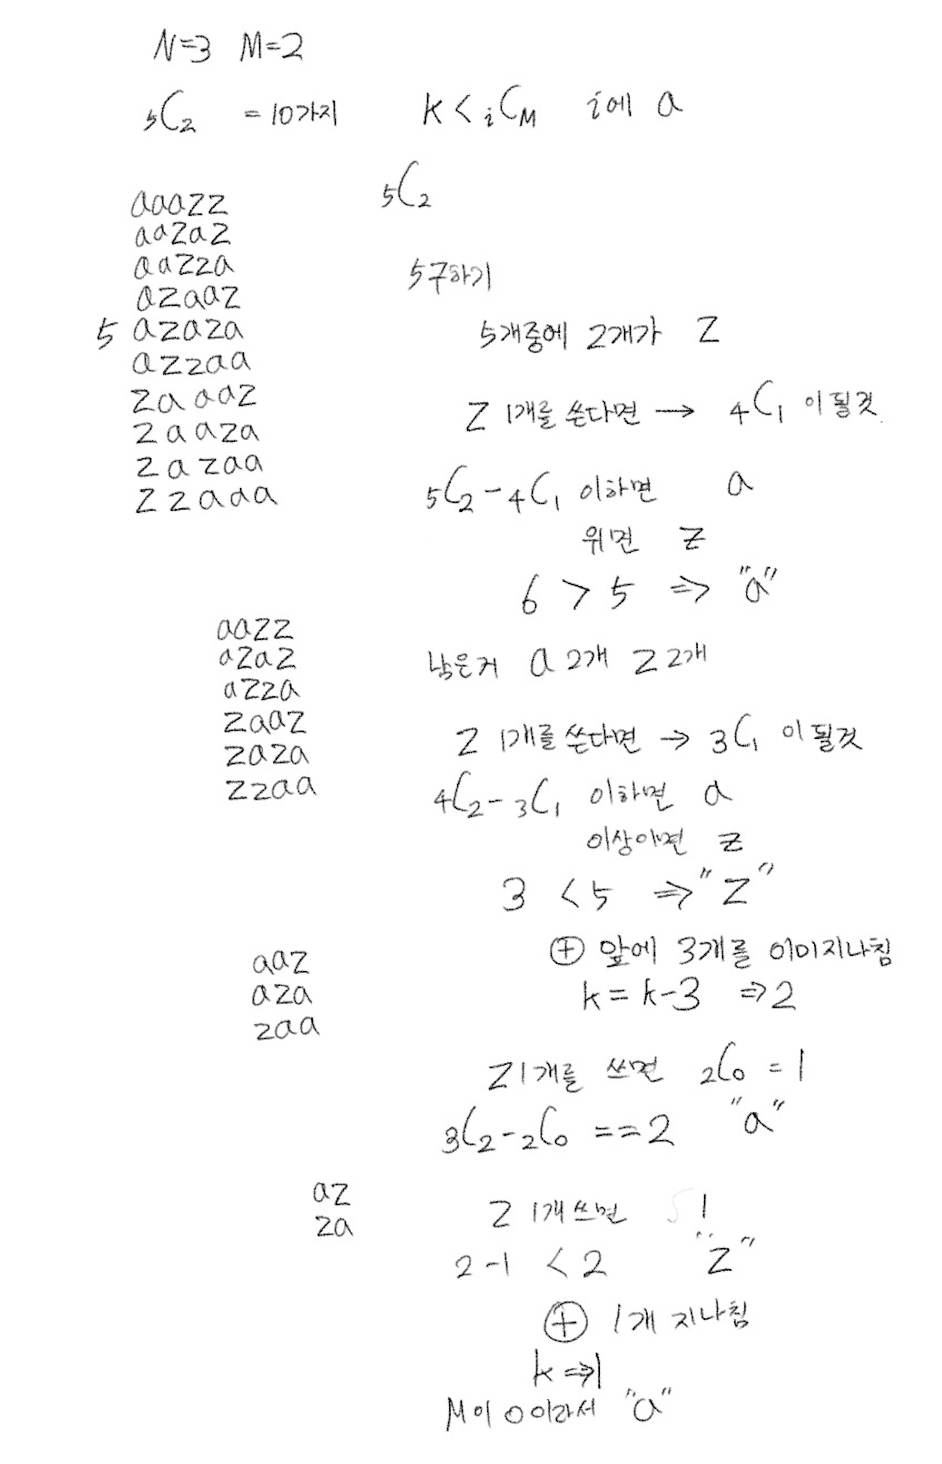 N=3 M=2
5C2 = 10가지 K < iCM i에 a
5C2
aaazz
aazaz
aazza
azaaz
5 azaza
azzaa
zaaaz
zaaza
zazaa
zzaaa
5구하기
5개중에 2개가 Z
Z 1개를 쓴다면 → 4C1 이 될것.
5C2 - 4C1 이하면 a
위면 z
6 > 5 ⇒ "a"
aazz
azaz
azza
zaaz
zaza
zzaa
남은거 a 2개 z 2개
Z 1개를 쓴다면 → 3C1 이 될것
4C2 - 3C1 이하면 a
이상이면 z
3 < 5 ⇒ "z"
⊕ 앞에 3개를 이미지나침
k = k-3 ⇒ 2
aaz
aza
zaa
Z 1개를 쓰면 2C0 = 1
3C2 - 2C0 == 2 "a"
az
za
Z 1개 쓰면 1
2-1 < 2 "z"
⊕ 1개 지나침
k ⇒ 1
M이 0이라서 "a"